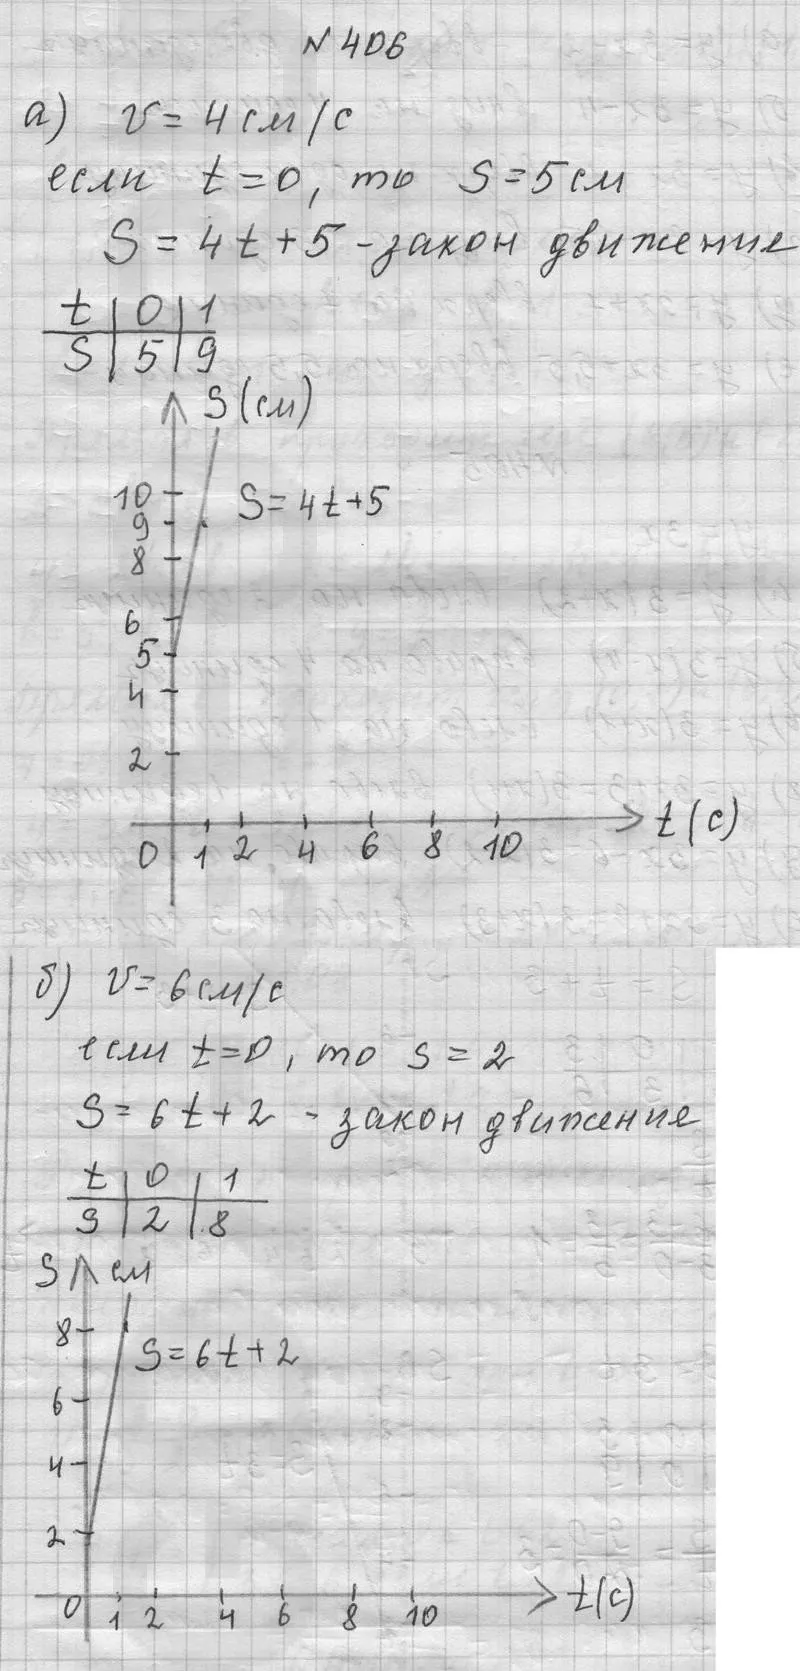 N 406
а) v = 4 см/с
если t = 0, то S = 5 см
S = 4t + 5 - закон движение
t | 0 | 1
S | 5 | 9
S (см)
10
9
S = 4t + 5
8
6
5
4
2
0 1 2 4 6 8 10 t (с)
б) v = 6 см/с
если t = 0, то s = 2
S = 6t + 2 - закон движение
t | 0 | 1
S | 2 | 8
S см
8
S = 6t + 2
6
4
2
0 1 2 4 6 8 10 t (с)